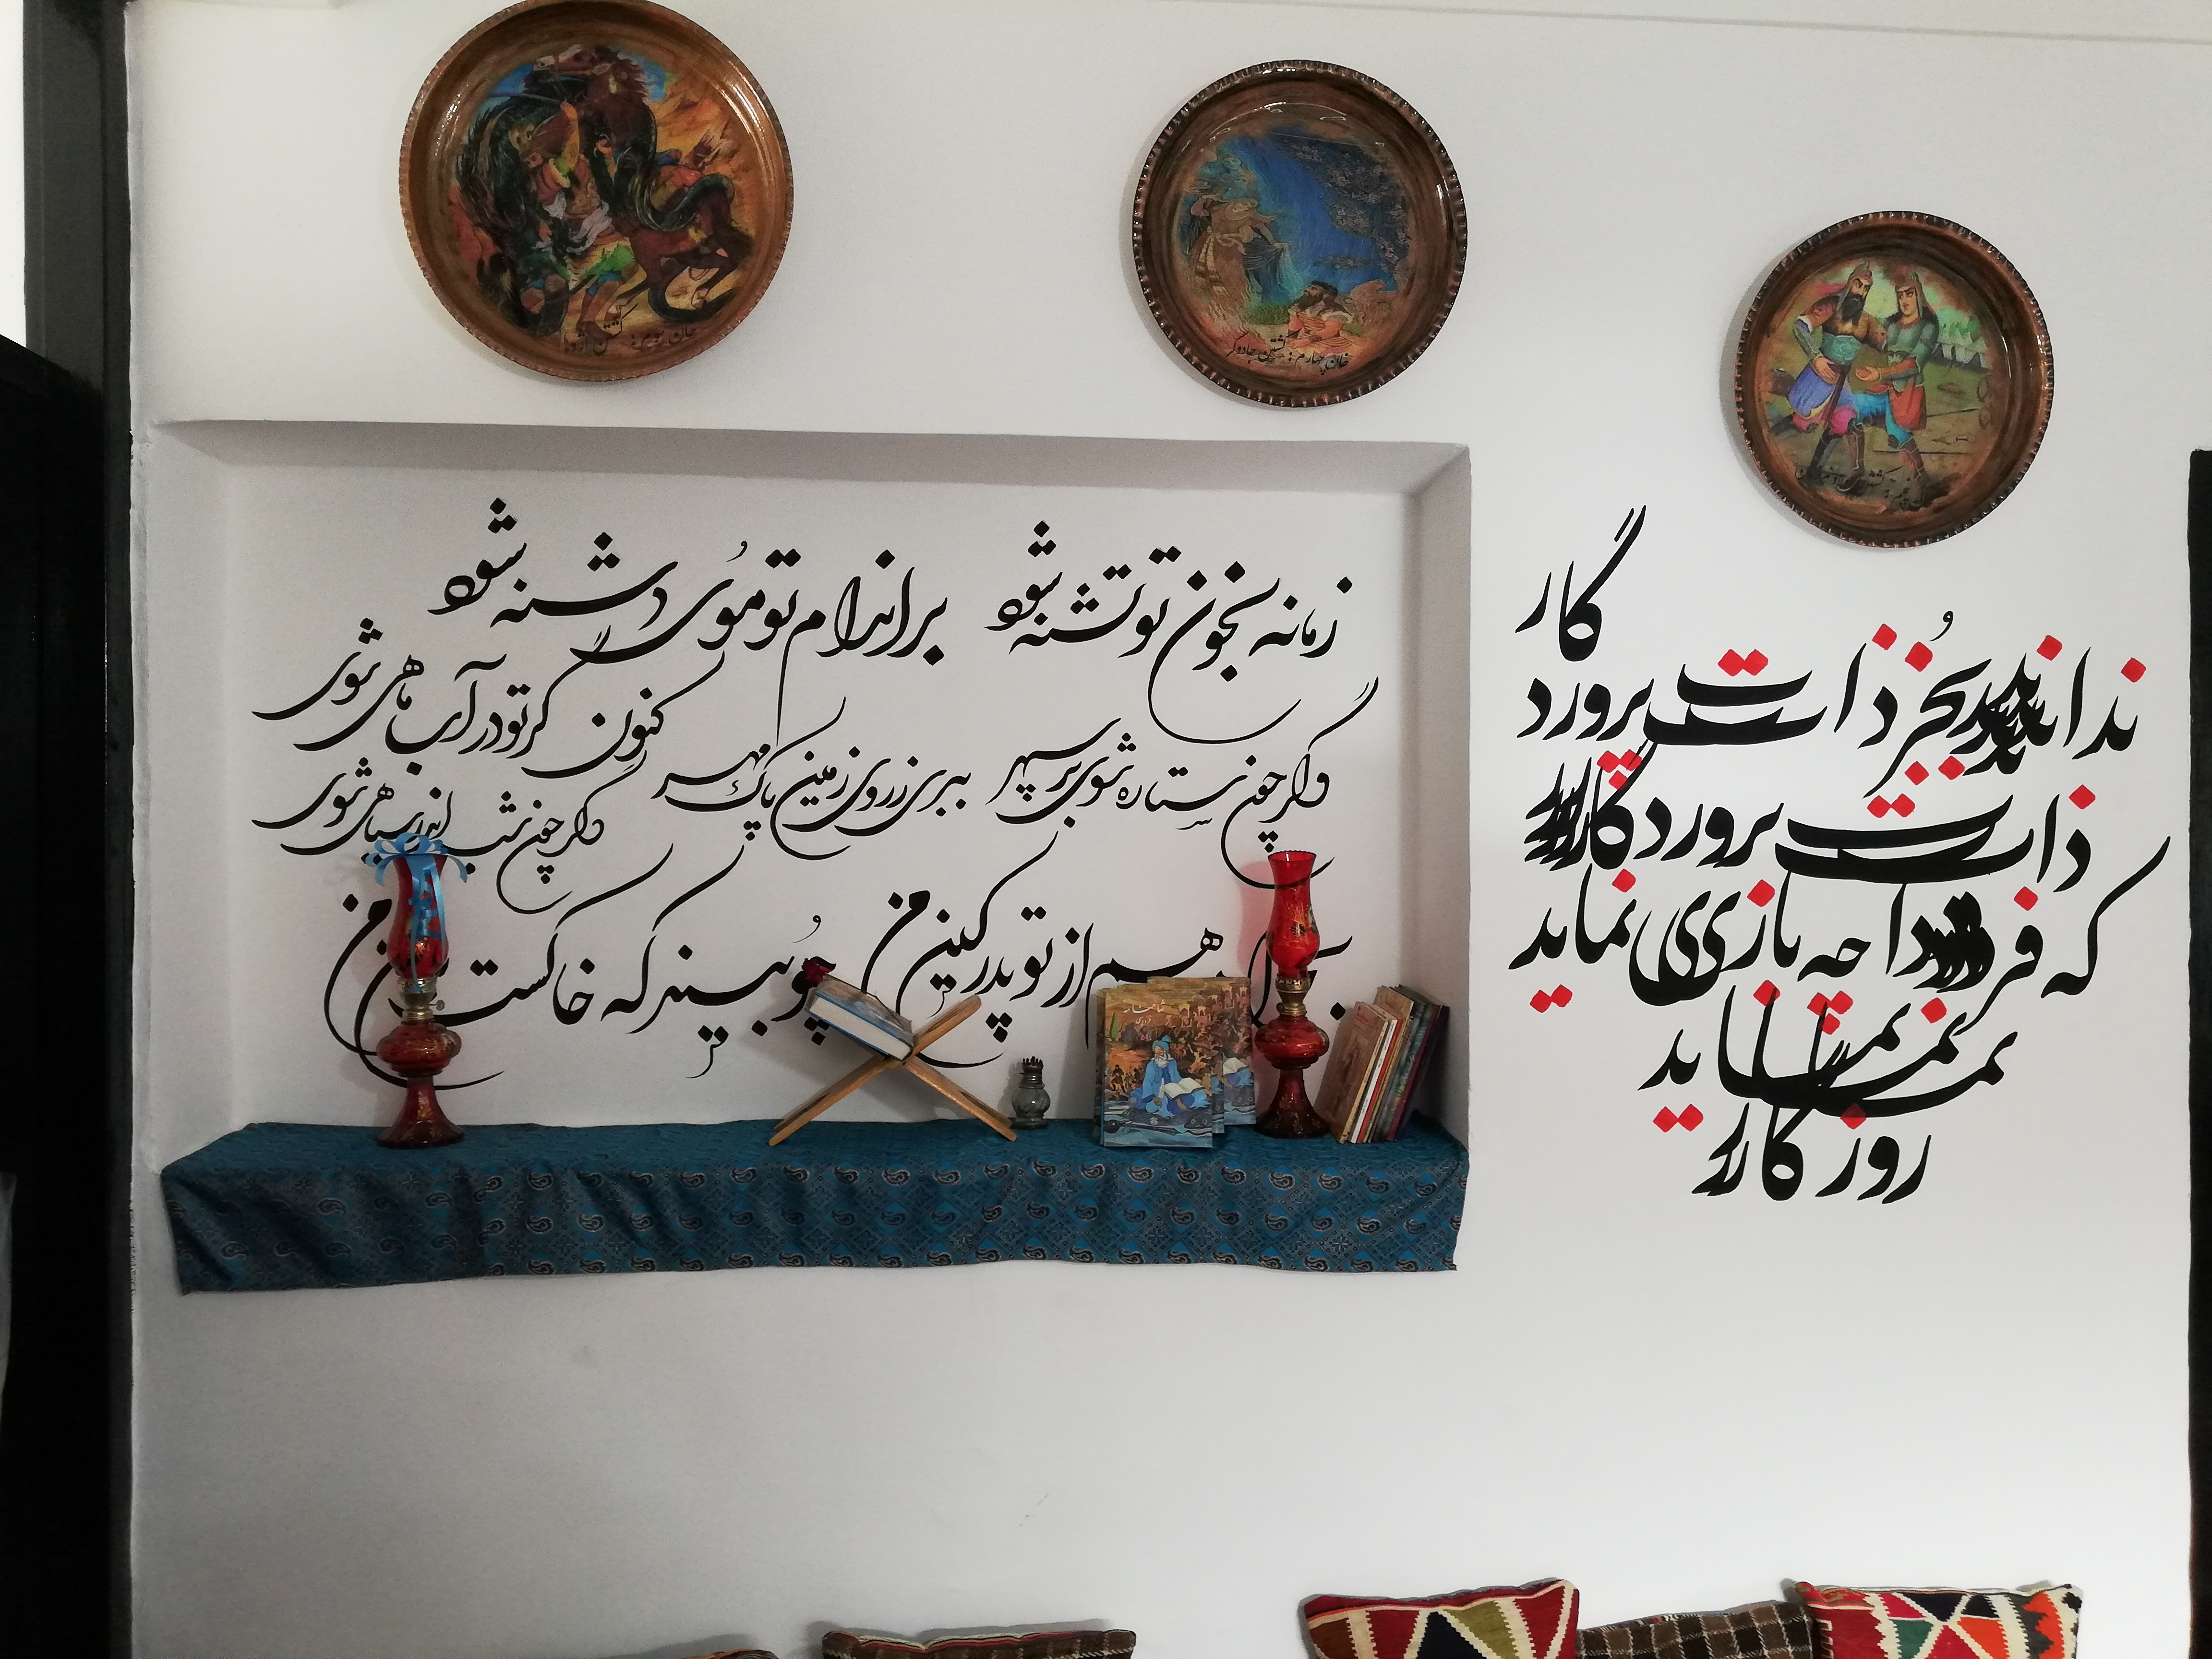 خان سوم: کشتن اژدها
خان چهارم: کشتن جادوگر
زمانه بخون تو تشنه شود براندام تو موی دشنه شود
کنون گر تو در آب ماهی شوی
وگر چون شب اندر سیاهی شوی
وگر چون ستاره شوی بر سپهر ببری ز روی زمین پاک مهر
هم از تو پدر کین من چو بیند که خاکست من
نداند بجز ذات پروردگار
ذات پروردگار
که فردا چه بازی نماید
نماید
روزگار
شاهنامه